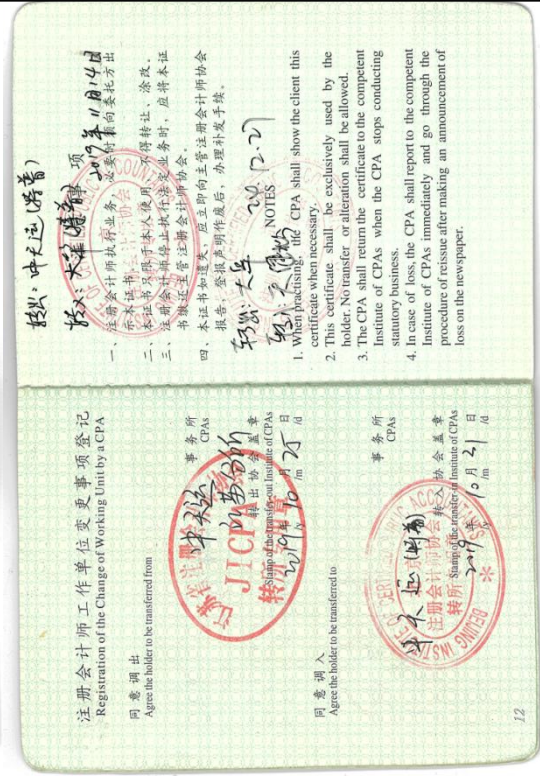 注册会计师工作单位变更事项登记
Registration of the Change of Working Unit by a CPA
同意调出
Agree the holder to be transferred from
中天运
江苏分所
事务所
CPAs
江苏省注册会计师协会
JICPA
转所专用章
转出协会盖章
Stamp of the transfer-out Institute of CPAs
2019年10月25日
/y /m /d
同意调入
Agree the holder to be transferred to
中天运(特普)
事务所
CPAs
BEIJING INSTITUTE OF CERTIFIED PUBLIC ACCOUNTANTS
注册会计师协会
转所专用章
转入协会盖章
Stamp of the transfer-in Institute of CPAs
2019年10月
日
/y /m /d
12
转出：中天运(特普)
转入：
2019年11月14日
注意事项
一、注册会计师执行业务，必要时须向委托方出
示本证书。
二、本证书只限于本人使用，不得转让、涂改。
三、注册会计师停止执行法定业务时，应将本证
书缴还主管注册会计师协会。
四、本证书如遗失，应立即向主管注册会计师协会
报告，登报声明作废后，办理补发手续。
转出：
24.12.27
转入：
NOTES
1. When practising, the CPA shall show the client this
certificate when necessary.
2. This certificate shall be exclusively used by the
holder. No transfer or alteration shall be allowed.
3. The CPA shall return the certificate to the competent
Institute of CPAs when the CPA stops conducting
statutory business.
4. In case of loss, the CPA shall report to the competent
Institute of CPAs immediately and go through the
procedure of reissue after making an announcement of
loss on the newspaper.